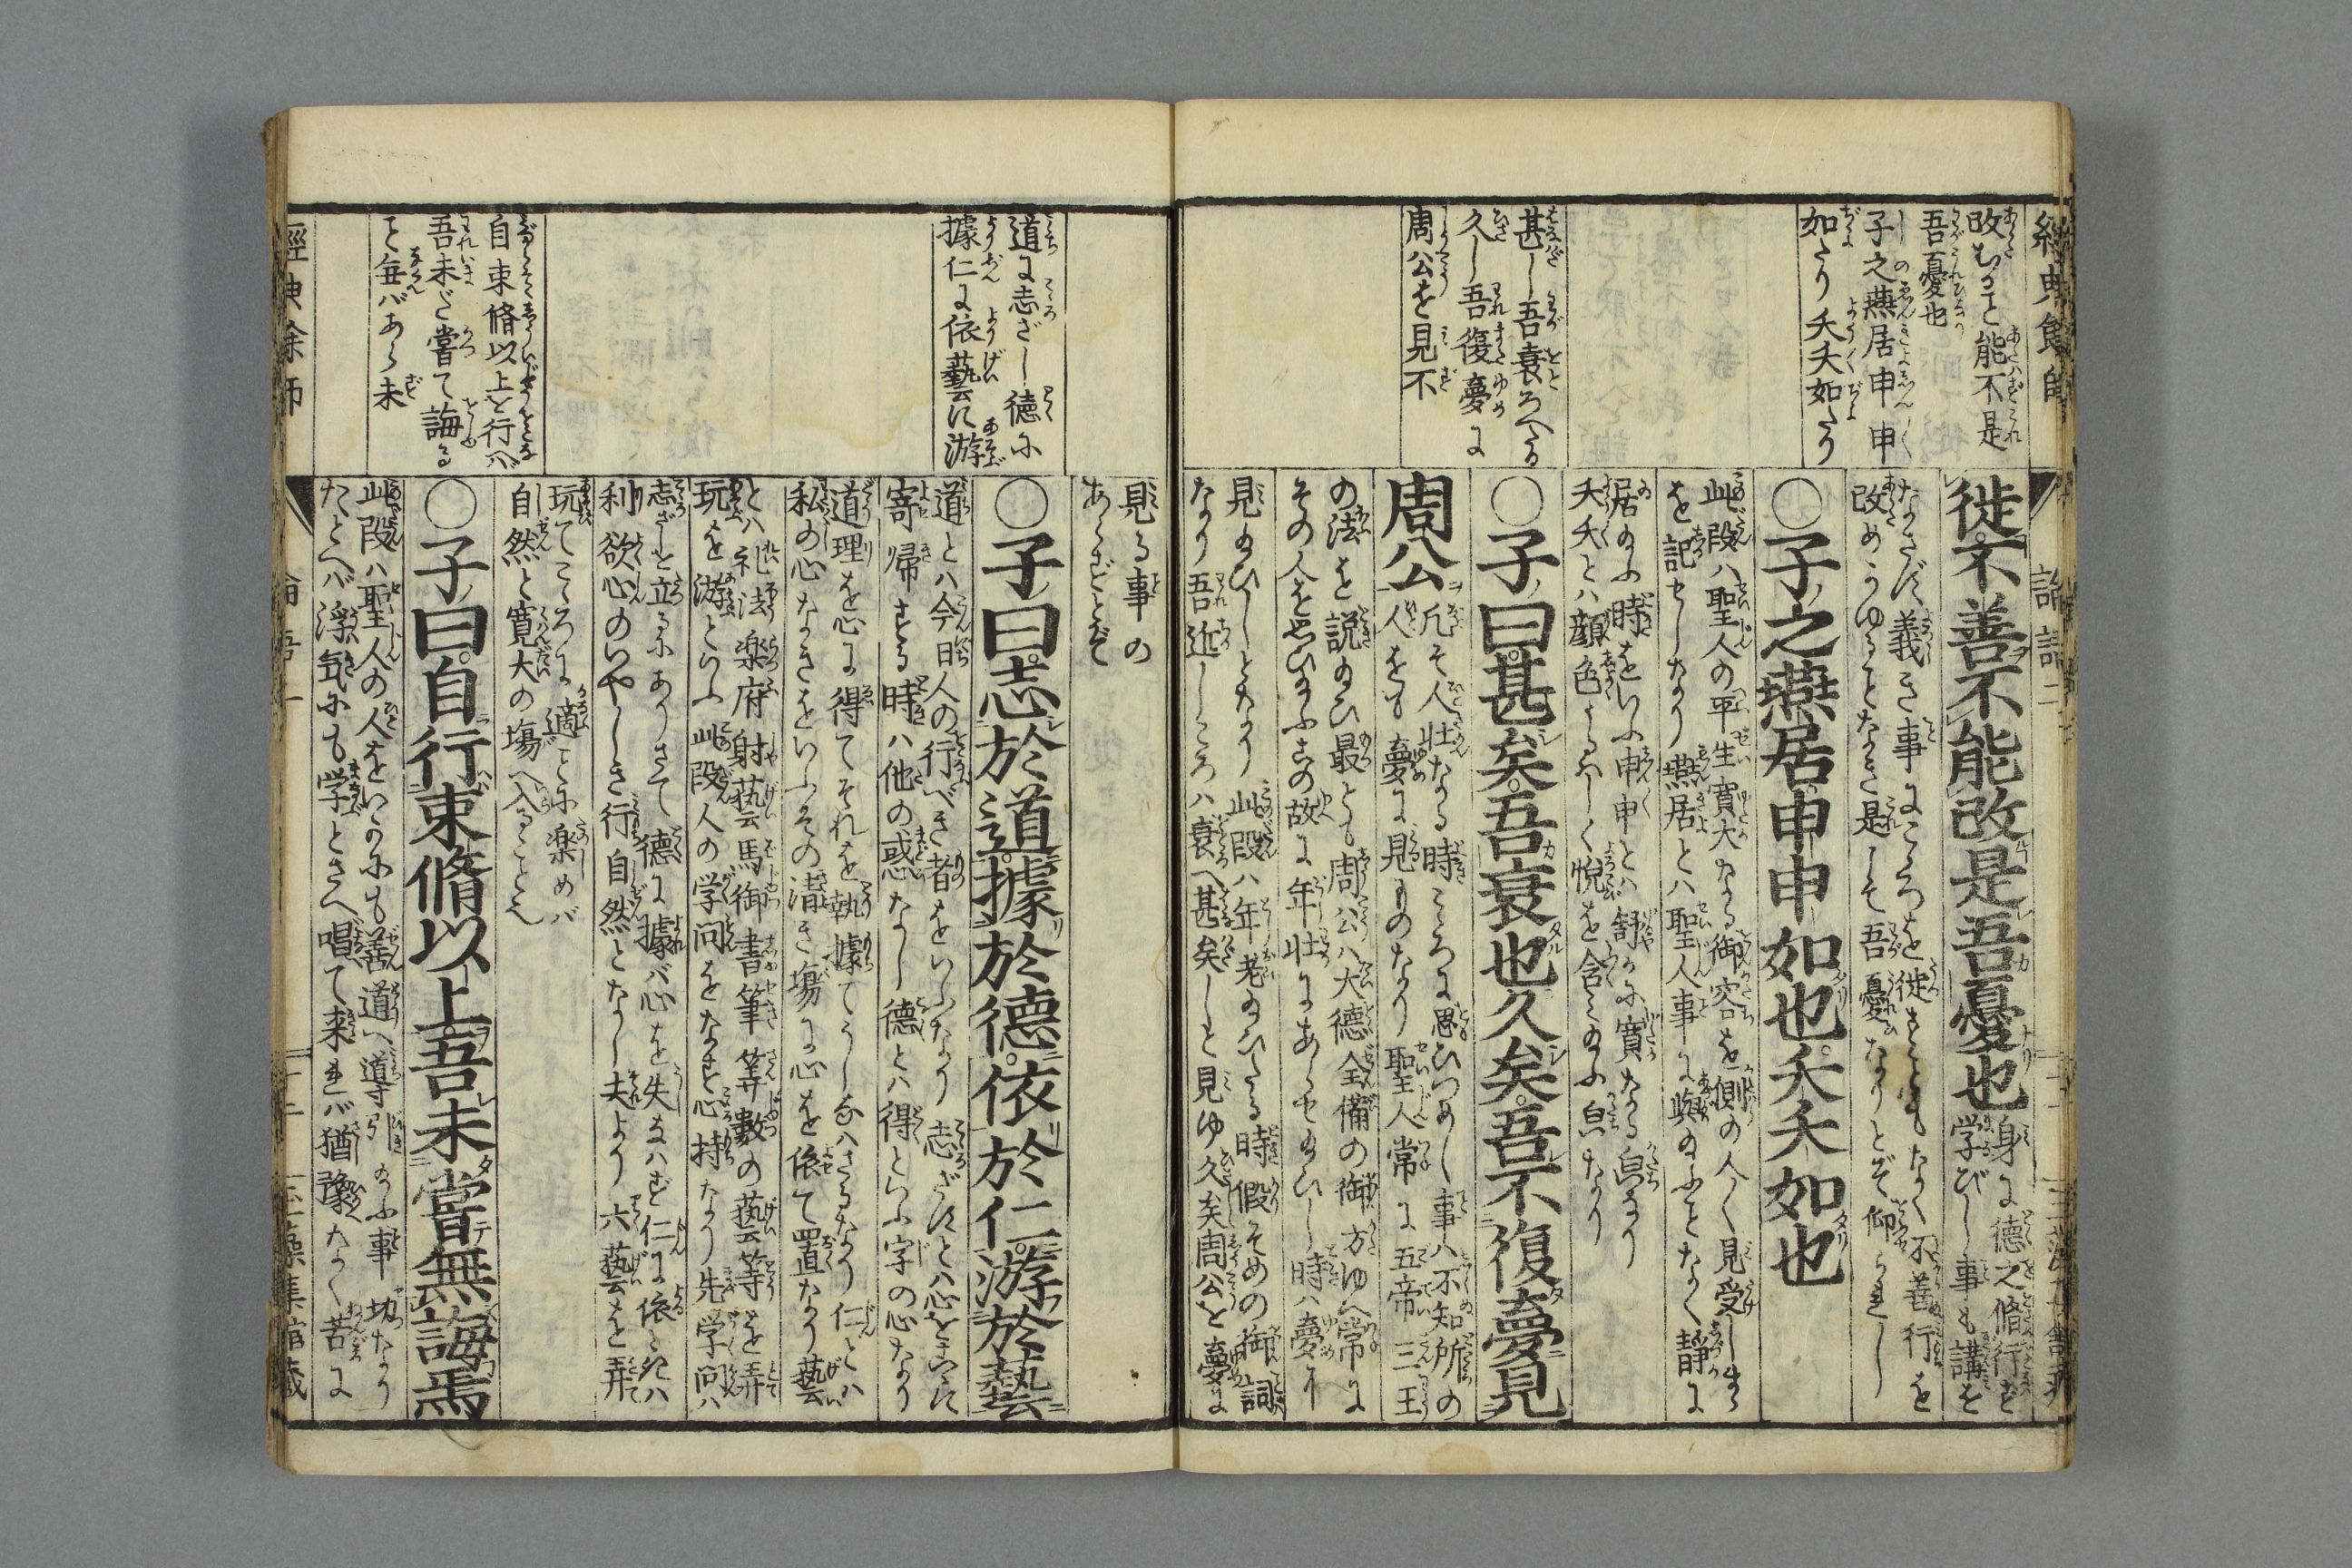 經典餘師
論語二
改むること能不是
吾憂也
子之燕居申申
如たり夭夭如たり
甚し吾衰ろへたる
久し吾復夢に
周公を見不
徙不善不能改是吾憂也
身に德之脩行を
学びし事も講を
なさず義き事にこゝろを徙すこともなく不善行を
改めうゆることなき是して吾憂なりとぞ仰られし
○子之燕居申申如也夭夭如也
此段ハ聖人の平生寬大なる御容を側の人〱見受しまゝ
を記せしなり燕居とハ聖人事に與のふことなく靜に
居のふ時をいふ申申とハ舒かに寬たる皃なり
夭夭とハ顔色うるハしく悅を含みのふ皃なり
○子曰甚矣吾衰也久矣吾不復夢見
周公
凡そ人壯なる時こゝろに思ひつめし事ハ不知所の
人をも夢に見ものなり聖人常に五帝三王
の法を説のひ最とも周公ハ大德全備の御方ゆへ常に
その人を思ひのふこの故に年壯にあらせのひし時ハ夢に
見のひしとなり此段ハ年老のひたる時假そめの御詞
なり吾近しころハ衰へ甚矣しと見ゆ久矣周公を夢に
道に志ざし德に
據仁に依藝に游
自束脩以上を行へバ
吾未だ嘗て誨る
こと無バあら未
見る事の
あらざるとぞ
○子曰志於道據於德依於仁游於藝
道とハ今日人の行べき者をいふなり志ざすとハ心をこゝに
寄歸する時ハ他の惑なし德とハ得といふ字の心なり
道理を心に得てそれを執據てうしなハさるなり仁とハ
私の心なきをいふその清き塲に心を依て置なり藝
とハ礼法楽府射藝馬御書筆算數の藝等を弄
玩を游といふ此段人の学問をなす心持なり先学問ハ
志ざしを立るにありさて德に據バ心を失なハず仁に依ときハ
利欲心のいやしき行自然となし夫より六藝を弄
玩てこゝろに適ことに楽めバ
自然と寬大の塲へ入ること也
○子曰自行束脩以上吾未嘗無誨焉
此段ハ聖人の人をいかにも善道へ導引のふ事切なり
たとへバ浮気にも学ときへ唱て来れバ猶豫なく苦に
經典餘師
論語二